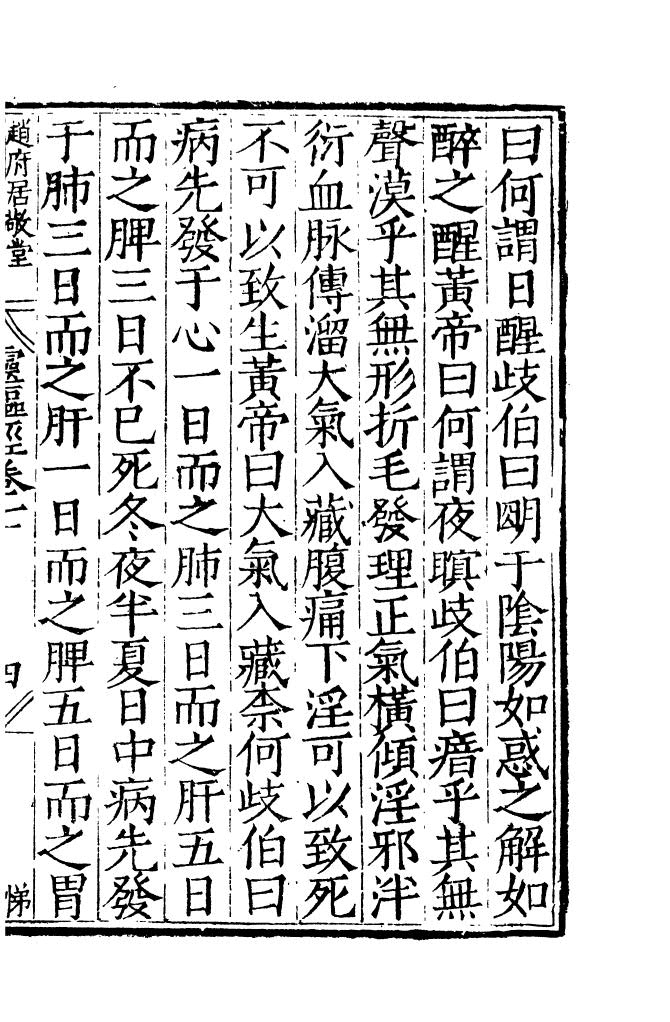 曰何謂日醒歧伯曰明于陰陽如惑之解如
醉之醒黃帝曰何謂夜瞑歧伯曰瘖乎其無
聲漠乎其無形折毛發理正氣橫傾淫邪泮
衍血脉傳溜大氣入藏腹痛下淫可以致死
不可以致生黃帝曰大氣入藏柰何歧伯曰
病先發于心一日而之肺三日而之肝五日
而之脾三日不已死冬夜半夏日中病先發
于肺三日而之肝一日而之脾五日而之胃
趙府居敬堂
靈樞經卷十
四
悌